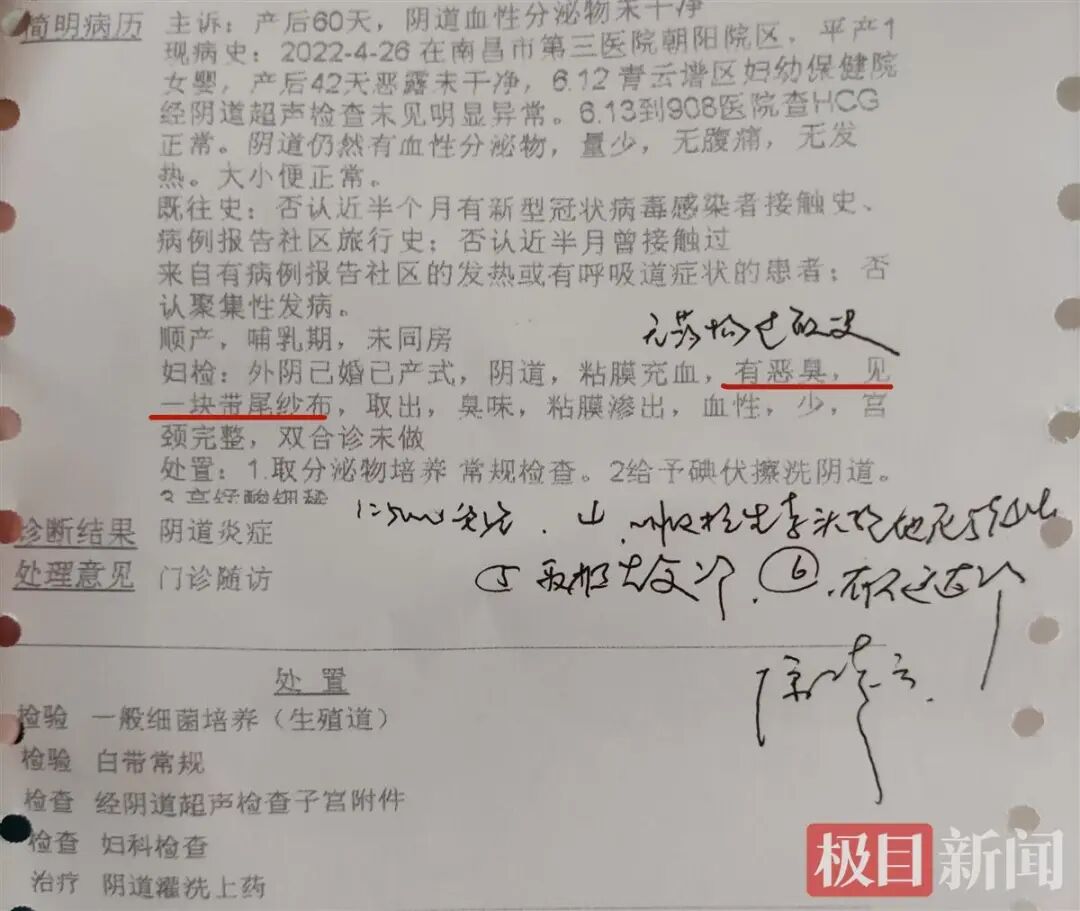 简明病历 主诉：产后60天，阴道血性分泌物未干净
现病史：2022-4-26在南昌市第三医院朝阳院区，平产1
女婴，产后42天恶露未干净，6.12青云谱区妇幼保健院
经阴道超声检查未见明显异常。6.13到908医院查HCG
正常。阴道仍然有血性分泌物，量少，无腹痛，无发
热。大小便正常。
既往史：否认近半个月有新型冠状病毒感染者接触史、
病例报告社区旅行史；否认近半月曾接触过
来自有病例报告社区的发热或有呼吸道症状的患者；否
认聚集性发病。
顺产，哺乳期，未同房
无药物过敏史
妇检：外阴已婚已产式，阴道，粘膜充血，有恶臭，见
一块带尾纱布，取出，臭味，粘膜渗出，血性，少，宫
颈完整，双合诊未做
处置：1.取分泌物培养 常规检查。2给予碘伏擦洗阴道。
诊断结果 阴道炎症
处理意见 门诊随访
处置
检验 一般细菌培养（生殖道）
检验 白带常规
检查 经阴道超声检查子宫附件
检查 妇科检查
治疗 阴道灌洗上药
极目新闻